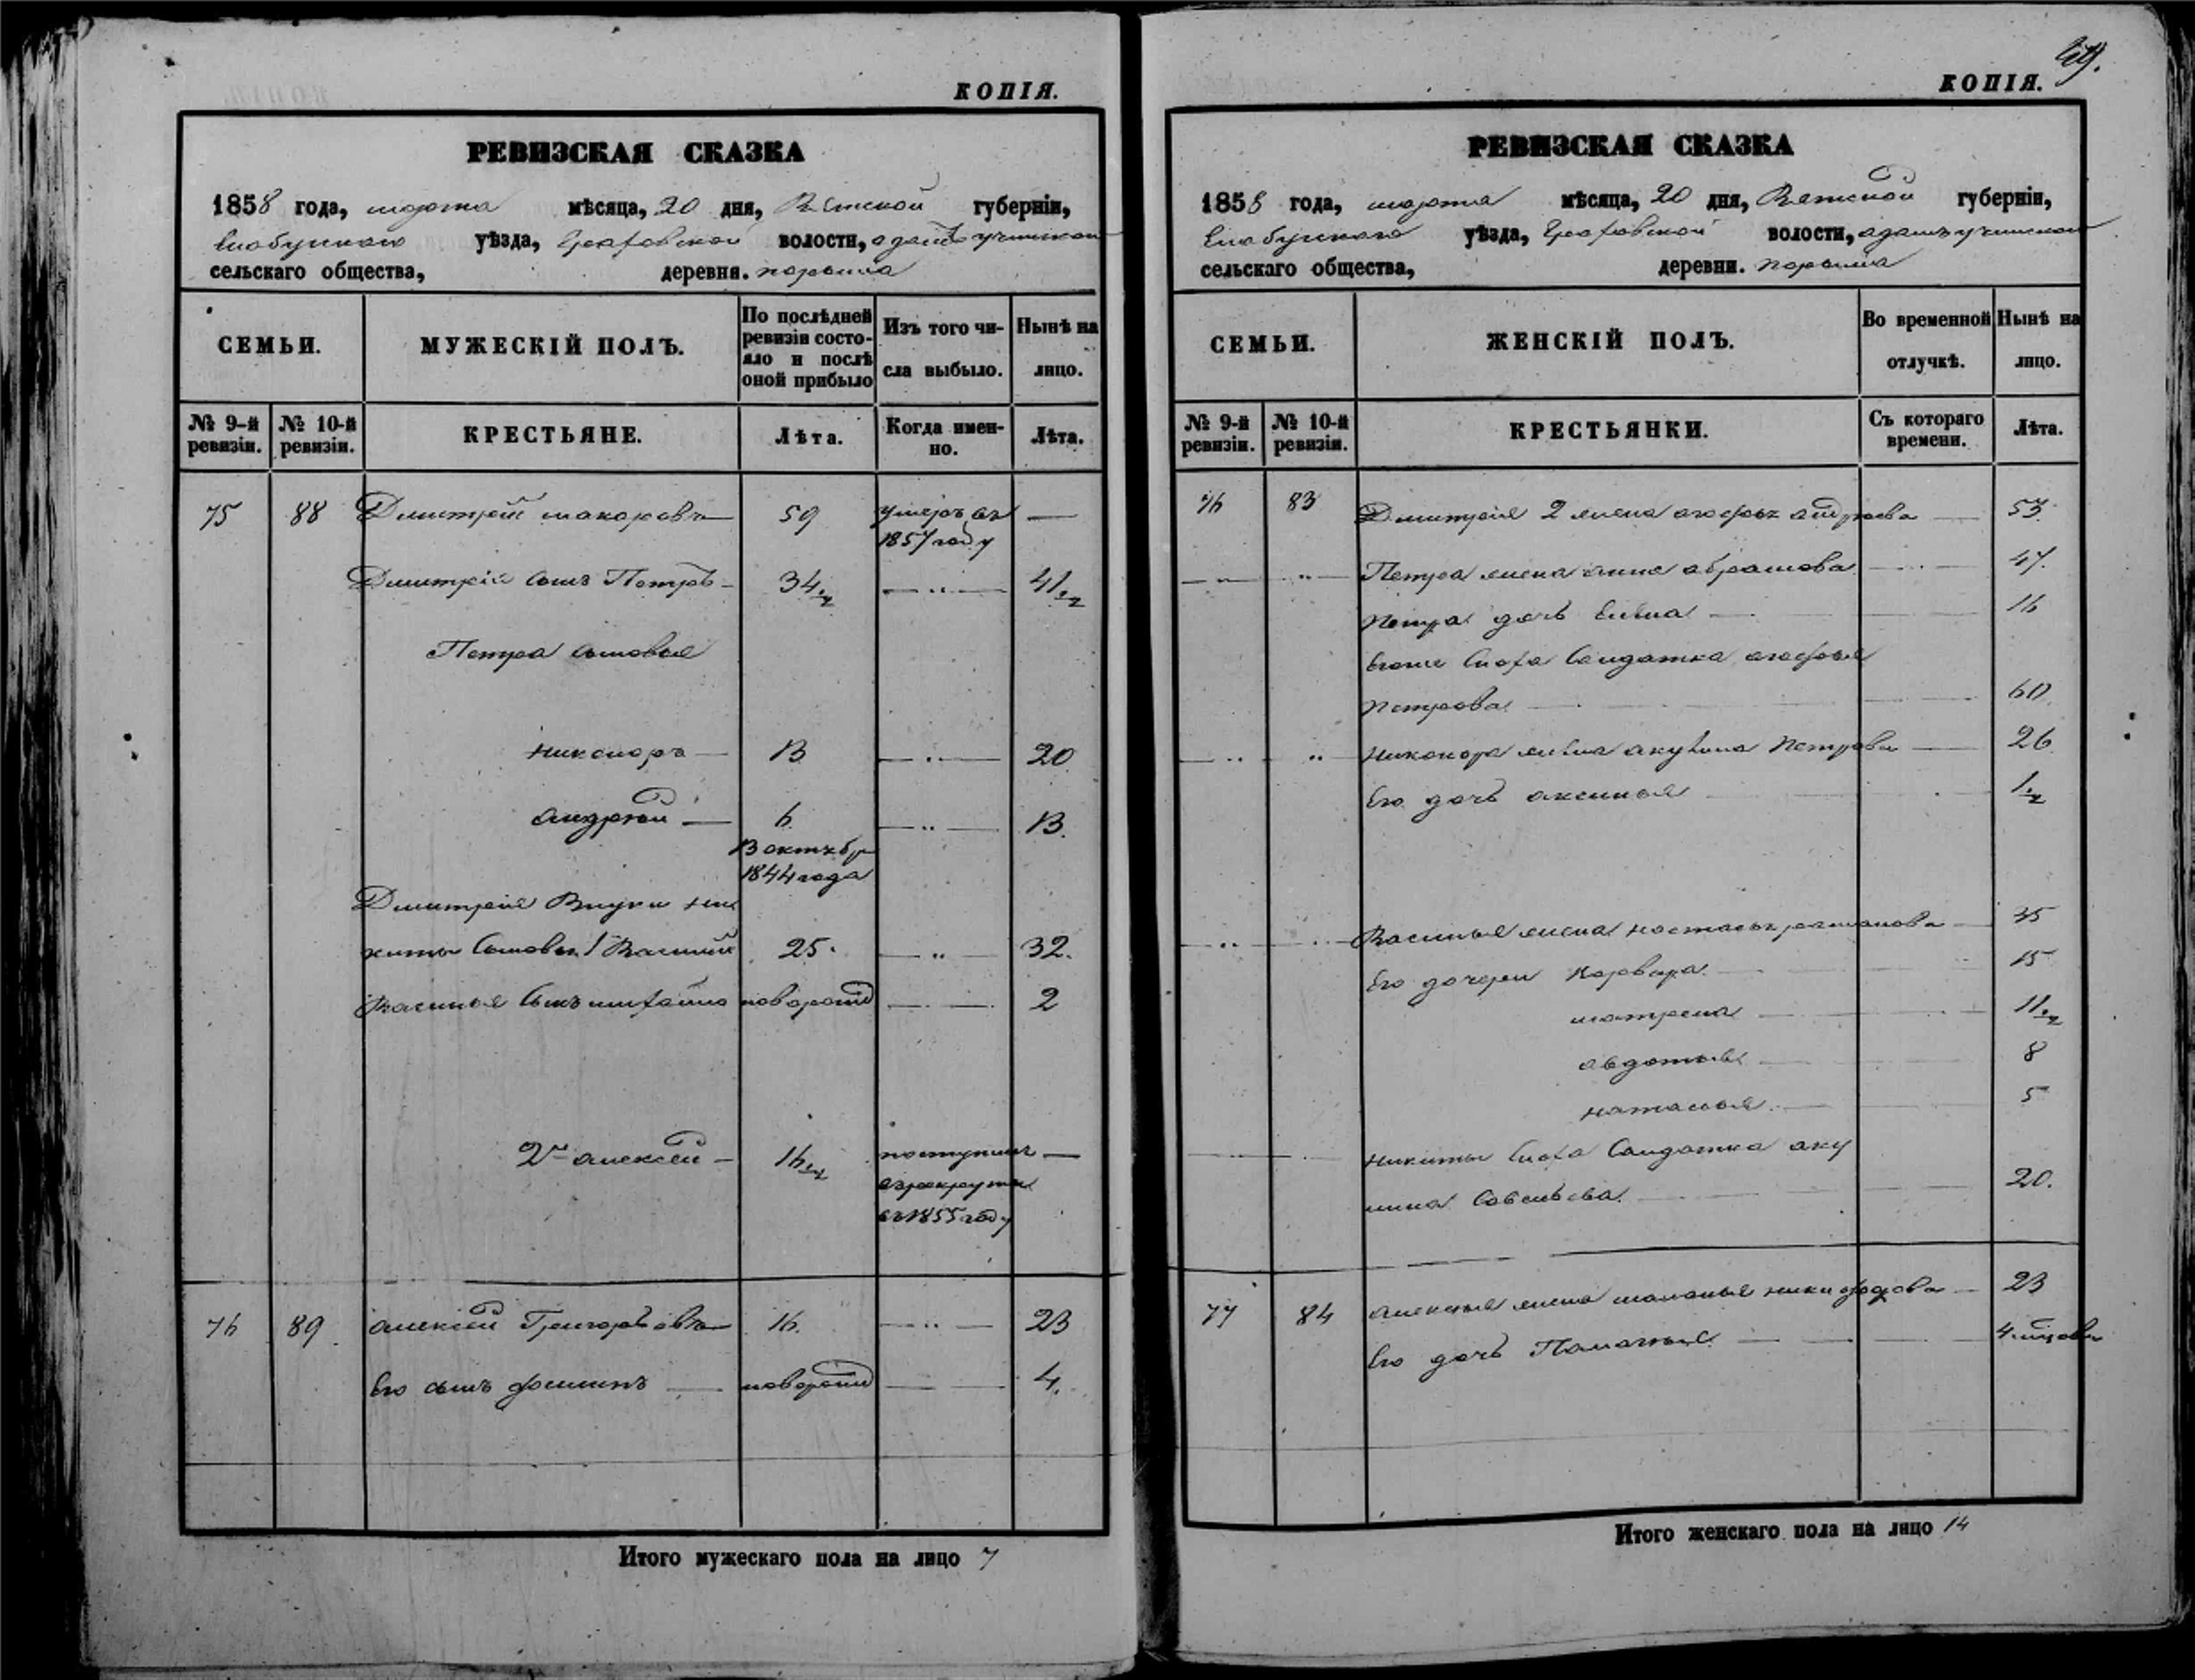 КОПІЯ.
РЕВИЗСКАЯ СКАЗКА
1858 года, марта мѣсяца, 20 дня, Вятской губерніи,
Елабужскаго уѣзда, Граховской волости, адамъ учинской
сельскаго общества, деревня.
СЕМЬИ.
МУЖЕСКІЙ ПОЛЪ.
По послѣдней ревизіи состояло и послѣ оной прибыло
Изъ того числа выбыло.
Нынѣ на лицо.
№ 9-й ревизіи.
№ 10-й ревизіи.
КРЕСТЬЯНЕ.
Лѣта.
Когда именно.
Лѣта.
75 88 Дмитрей макаровъ 59 умеръ въ
1857 году
Дмитрія сынъ Петръ 34 41
Петра сыновья
никоноръ 13 20
андрей 6 13.
13 октябр
1844 года
Дмитрія Внуки ни
киты сыновья 1 Василій 25. 32.
Василья сынъ михайло новорожд 2
2й алексей 16 поступилъ
въ рекруты
въ 1855 году
76 89 алексей Григорьевъ 16. 23
Его сынъ новорожд 4.
Итого мужескаго пола на лицо 7
49.
КОПІЯ.
РЕВИЗСКАЯ СКАЗКА
1858 года, марта мѣсяца, 20 дня, Вятской губерніи,
Елабужскаго уѣзда, Граховской волости, адамъ учинской
сельскаго общества, деревни.
СЕМЬИ.
ЖЕНСКІЙ ПОЛЪ.
Во временной отлучкѣ.
Нынѣ на лицо.
№ 9-й ревизіи.
№ 10-й ревизіи.
КРЕСТЬЯНКИ.
Съ котораго времени.
Лѣта.
76 83 Дмитрія 2 жена агафья андреева 53.
Петра жена анна абрамова 47.
Петра дочь Елена 16
Егоже сноха Солдатка агафья
Петрова 60.
никонора жена акулина Петрова 26
Его дочь аксинья 1
Василья жена настасья романова 35
Его дочери 15
матрена 11
авдотья 8
наталья 5
никиты сноха Солдатка аку
лина Савельева 20.
77 84 алексея жена маланья никифорова 23
Его дочь
Итого женскаго пола на лицо 14